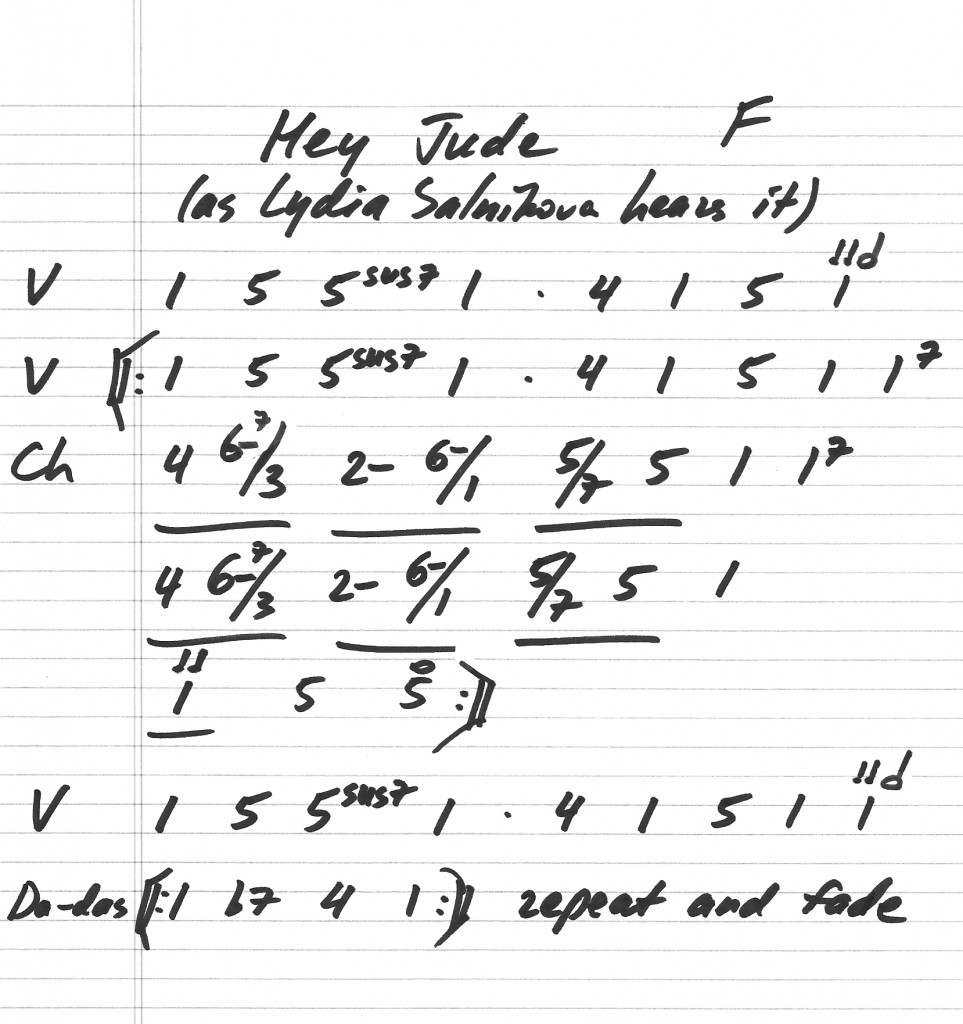 Hey Jude F
(as Lydia Salnikova hears it)
V 1 5 5sus7 1 . 4 1 5 1
V ‖: 1 5 5sus7 1 . 4 1 5 1 1⁷
Ch 4 6-⁷/3 2- 6-/1 5/7 5 1 1⁷
4 6-⁷/3 2- 6-/1 5/7 5 1
1 5 5 :‖
V 1 5 5sus7 1 . 4 1 5 1 1
Da-das ‖: 1 b7 4 1 :‖ repeat and fade